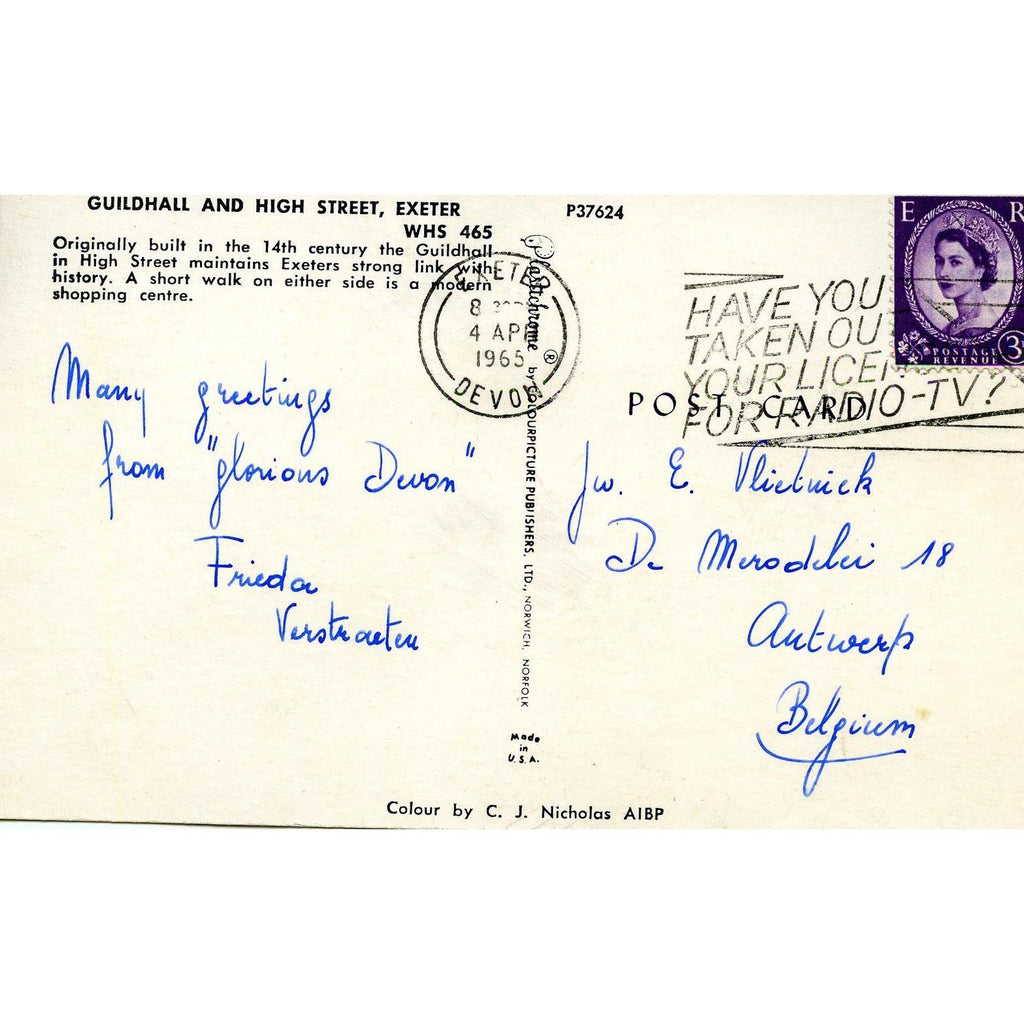 GUILDHALL AND HIGH STREET, EXETER
WHS 465
Originally built in the 14th century the Guildhall
in High Street maintains Exeters strong link with
history. A short walk on either side is a modern
shopping centre.
P37624
EXETER
4 APR
1965
DEVON
HAVE YOU
TAKEN OU
YOUR LICEN
FOR RADIO-TV?
E R
POSTAGE
REVENUE
3
POST CARD
Many greetings
from "glorious Devon"
Frieda
Verstraeten
Plastichrome ® by COLOURPICTURE PUBLISHERS, LTD., NORWICH, NORFOLK
Made
in
U.S.A.
Jw. E. Vlietnick
De Merodelei 18
Antwerp
Belgium
Colour by C. J. Nicholas AIBP